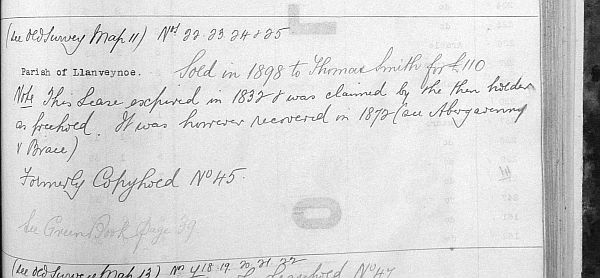 (See Old Survey Map 11) Nos 22. 23. 24 & 25
Parish of Llanveynoe. Sold in 1898 to Thomas Smith for £110
Note This Lease expired in 1832 & was claimed by the then holder
as freehold. It was however recovered in 1872 (see Abergavenny
v Brace)
Formerly Copyhold No 45.
See Green Book Page 39
(See Old Survey Map 13) Nos 18. 19. 20. 21. 22
No 47